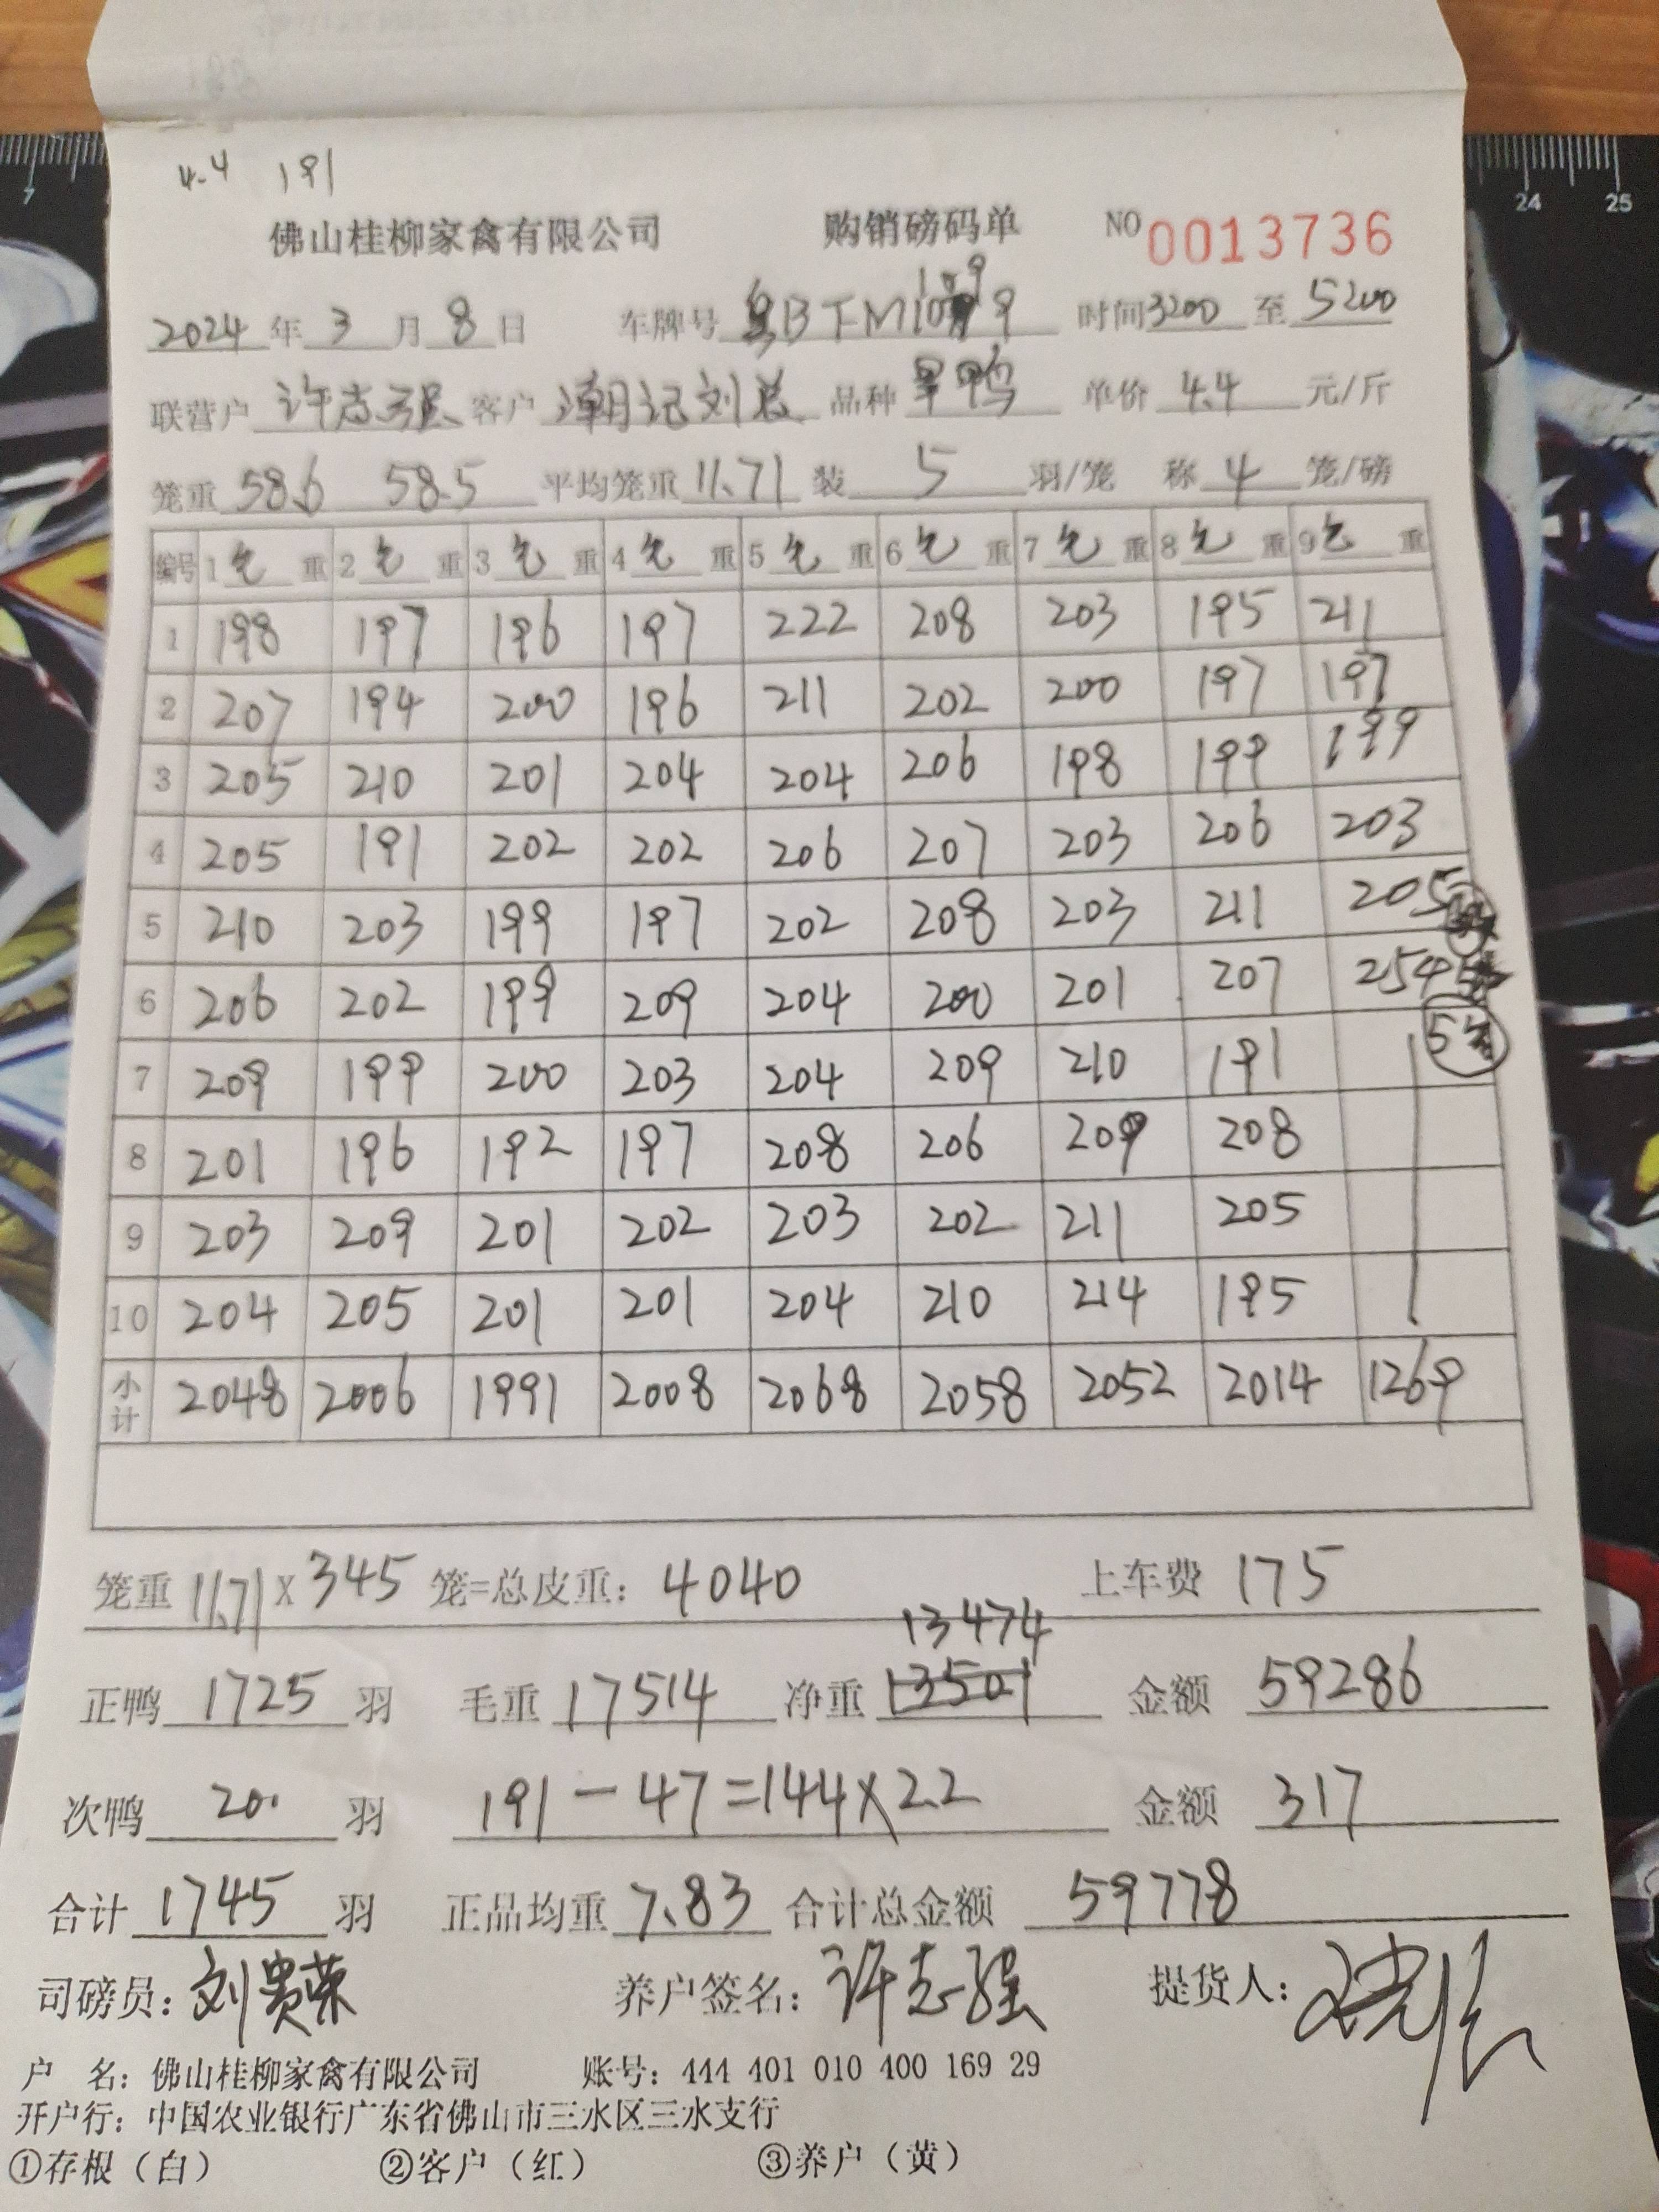 4.4 191
佛山桂柳家禽有限公司 购销磅码单 NO 0013736
2024 年 3 月 8 日 车牌号 粤BTM 时间 3200 至 5200
联营户 许志强 客户 潮记刘总 品种 旱鸭 单价 4.4 元/斤
笼重 58.6 58.5 平均笼重 11.71 装 5 羽/笼 称 4 笼/磅
编号 1 毛 重 2 毛 重 3 毛 重 4 毛 重 5 毛 重 6 毛 重 7 毛 重 8 毛 重 9 毛 重
1 198 197 196 197 222 208 203 195 211
2 207 194 200 196 211 202 200 197 197
3 205 210 201 204 204 206 198 199 199
4 205 191 202 202 206 207 203 206 203
5 210 203 199 197 202 208 203 211 205
6 206 202 199 209 204 200 201 207 254
7 209 199 200 203 204 209 210 191
8 201 196 192 197 208 206 209 208
9 203 209 201 202 203 202 211 205
10 204 205 201 201 204 210 214 195
小计 2048 2006 1991 2008 2068 2058 2052 2014 1269
笼重 11.71 x 345 笼=总皮重: 4040 上车费 175
13474
正鸭 1725 羽 毛重 17514 净重 13501 金额 59286
次鸭 20. 羽 191 - 47 = 144 x 2.2 金额 317
合计 1745 羽 正品均重 7.83 合计总金额 59778
司磅员: 刘贵荣 养户签名: 许志强 提货人:
户 名: 佛山桂柳家禽有限公司 账号: 444 401 010 400 169 29
开户行: 中国农业银行广东省佛山市三水区三水支行
①存根（白） ②客户（红） ③养户（黄）
7 24 25